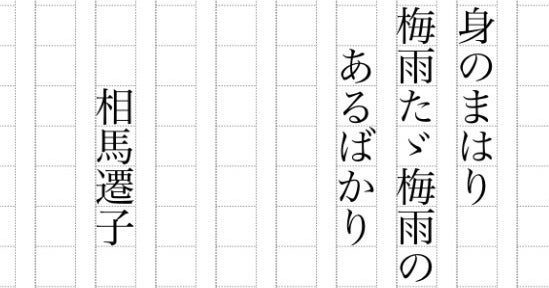 身のまはり
梅雨たゞ梅雨の
あるばかり
相馬遷子